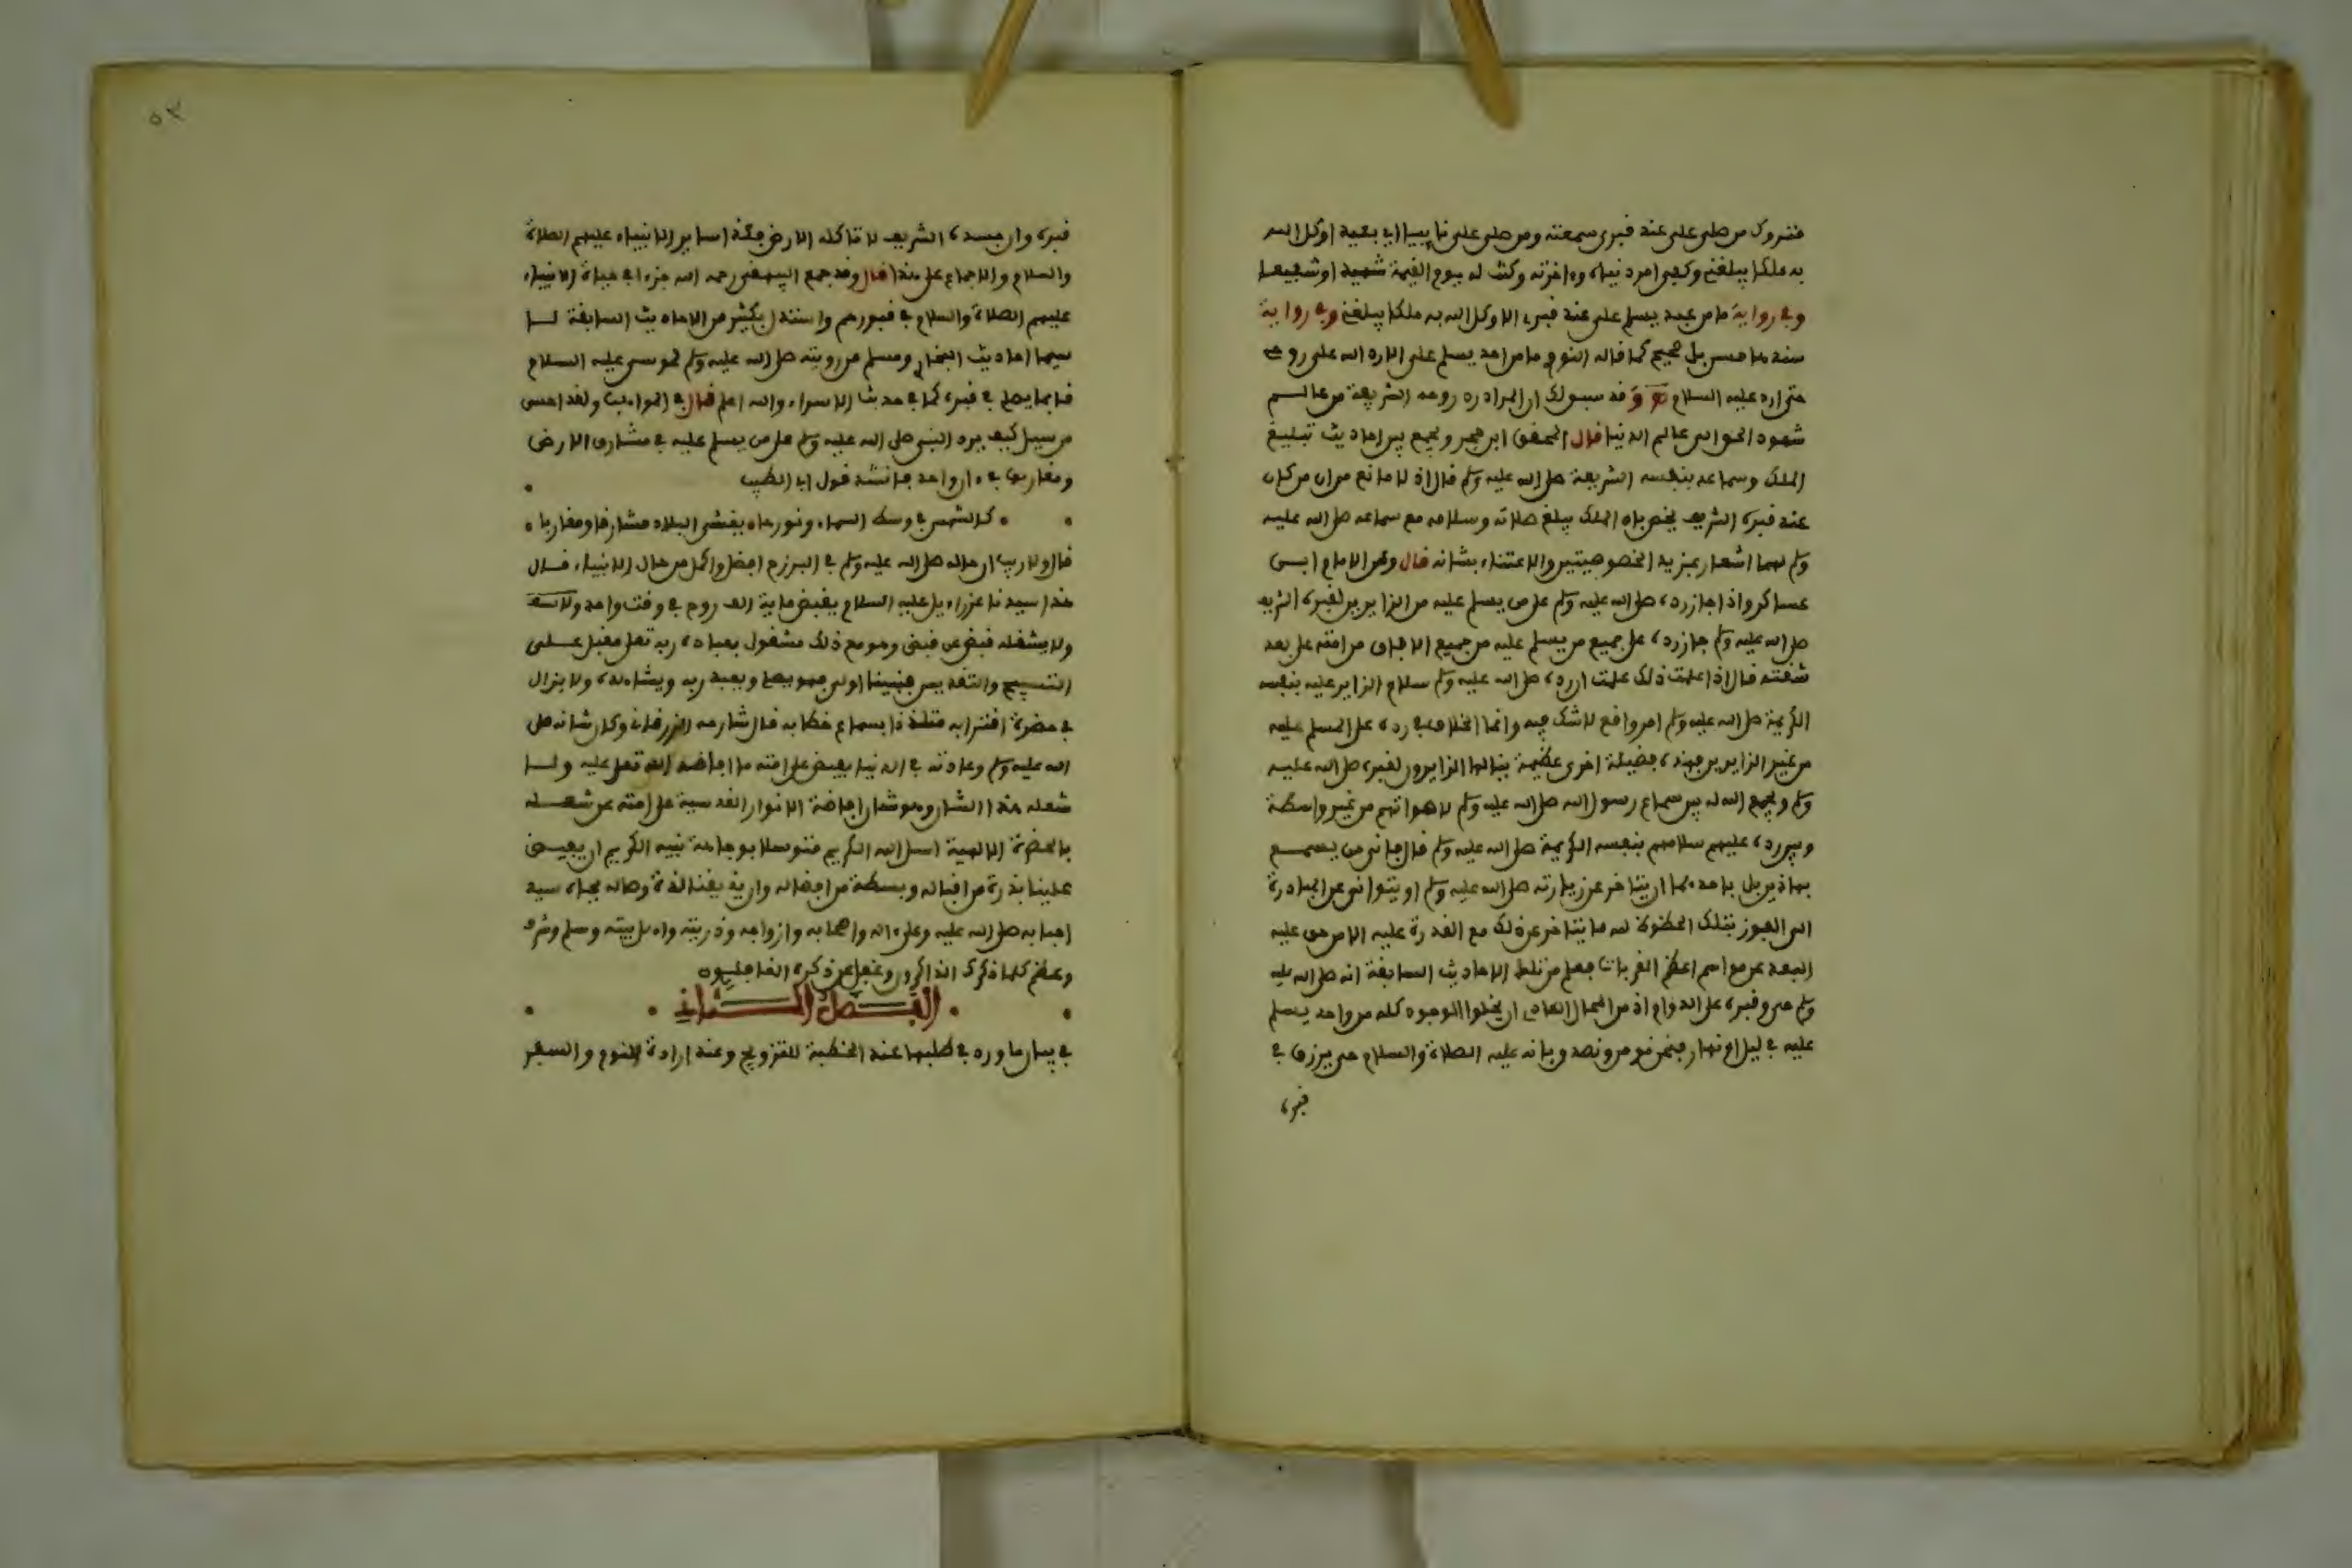 متروك من صلى علي عند قبري سمعته ومن صلى علي نائيا اي بعيدا وكل الله
به ملكا يبلغني وكفي امر دنياه وءاخرته وكنت له يوم القيمة شهيدا وشفيعا
وفي رواية ما من عبد يسلم علي عند قبري الا وكل الله به ملكا يبلغني وفي رواية
سندها حسن بل صحيح كما قاله النووي ما من احد يسلم علي الا رد الله علي روحي
حتى ارد عليه السلام وقد سبق لك ان المراد رد روحه الشريفة من عالم
شهود الحق الى عالم الدنيا قال المحقق ابن حجر ويجمع بين احاديث تبليغ
الملك وسماعه بنفسه الشريفة صلى الله عليه وسلم قال اذ لا مانع من ان من كان
عند قبره الشريف يخص بان الملك يبلغ صلاته وسلامه مع سماعه صلى الله عليه
وسلم لهما اشعارا بمزيد الخصوصيتين والاعتناء بشانه قال وعن الامام ابن
عساكر واذا جاز رده صلى الله عليه وسلم على من يسلم عليه من الزايرين لقبره الشريف
صلى الله عليه وسلم جاز رده على جميع من يسلم عليه من جميع الافاق من امته على بعد
شقته قال اذا علمت ذلك علمت ان رده صلى الله عليه وسلم سلام الزاير عليه بنفسه
الكريمة صلى الله عليه وسلم امر واقع لا شك فيه وانما الخلاف في رده على المسلم عليه
من غير الزايرين فهذه فضيلة اخرى عظيمة ينالها الزايرون لقبره صلى الله عليه
وسلم ويجمع الله له بين سماع رسول الله صلى الله عليه وسلم لاصواتهم من غير واسطة
وبين رده عليهم سلامهم بنفسه الكريمة صلى الله عليه وسلم قال فاني من يسمع
بهاذين بل باحدهما ان يتاخر عن زيارته صلى الله عليه وسلم او يتوانى عن المبادرة
الى الفوز بتلك الحظوة لله ما يتاخر عن ذلك مع القدرة عليه الا من حق عليه
البعد عن مواسم اعظم القربات فعلم من تلك الاحاديث السابقة انه صلى الله عليه
وسلم حي وقبره على الدوام اذ من المحال العادي ان يخلوا الوجود كله من واحد يسلم
عليه في ليل او نهار فنحن نومن ونصدق بانه عليه الصلاة والسلام حي يرزق في
قبره
٥٣
قبره وان جسده الشريف لا تاكله الارض وكذا ساير الانبياء عليهم الصلاة
والسلام والاجماع على هذا قال وقد جمع البيهقي رحمه الله جزءا في حياة الانبياء
عليهم الصلاة والسلام في قبورهم واستدل بكثير من الاحاديث السابقة لا
سيما احاديث البخاري ومسلم من رويته صلى الله عليه وسلم لموسى عليه السلام
قائما يصلي في قبره كما في حديث الاسراء والله اعلم قال في المواهب ولقد احسن
من سيل كيف يرد النبي صلى الله عليه وسلم على من يسلم عليه في مشارق الارض
ومغاربها في ءان واحد فانشد قول ابي الطيب
كالشمس في وسط السماء ونورها يغشى البلاد مشارقا ومغاربا
قال ولا ريب ان حاله صلى الله عليه وسلم في البرزخ افضل واكمل من حال الانبياء قال
هذا سيدنا عزراءيل عليه السلام يقبض ماية الف روح في وقت واحد
ولا يشغله قبض عن قبض وهو مع ذلك مشغول بعبادة ربه تعلى مقبل على
التسبيح والتقديس فنبينا اولى فهو يصلي ويعبد ربه ويشاهده ولا يزال
في حضرة اقترابه متلذذا بسماع خطابه قال شارحه الزرقاني وكان شانه صلى
الله عليه وسلم وعادته في الدنيا يفيض على امته مما افاضه الله تعلى عليه ولا
شغله هذا الشان وهو شان افاضة الانوار القدسية على امته عن شغله
بالحضرة الالهية اسل الله الكريم متوسلا بوجاهة نبيه الكريم ان يفيض
علينا بذرة من اقباله وبسطة من افضاله وان يذيقنا لذة وصاله بجاه سيد
احبابه صلى الله عليه وعلى ءاله واصحابه وازواجه وذريته واهل بيته وسلم وشرف
وعظم كلما ذكرك الذاكرون وغفل عن ذكره الغافلون
الفصل الثاني
في بيان ما ورد في طلبها عند الخطبة للتزويج وعند ارادة النوم والسفر